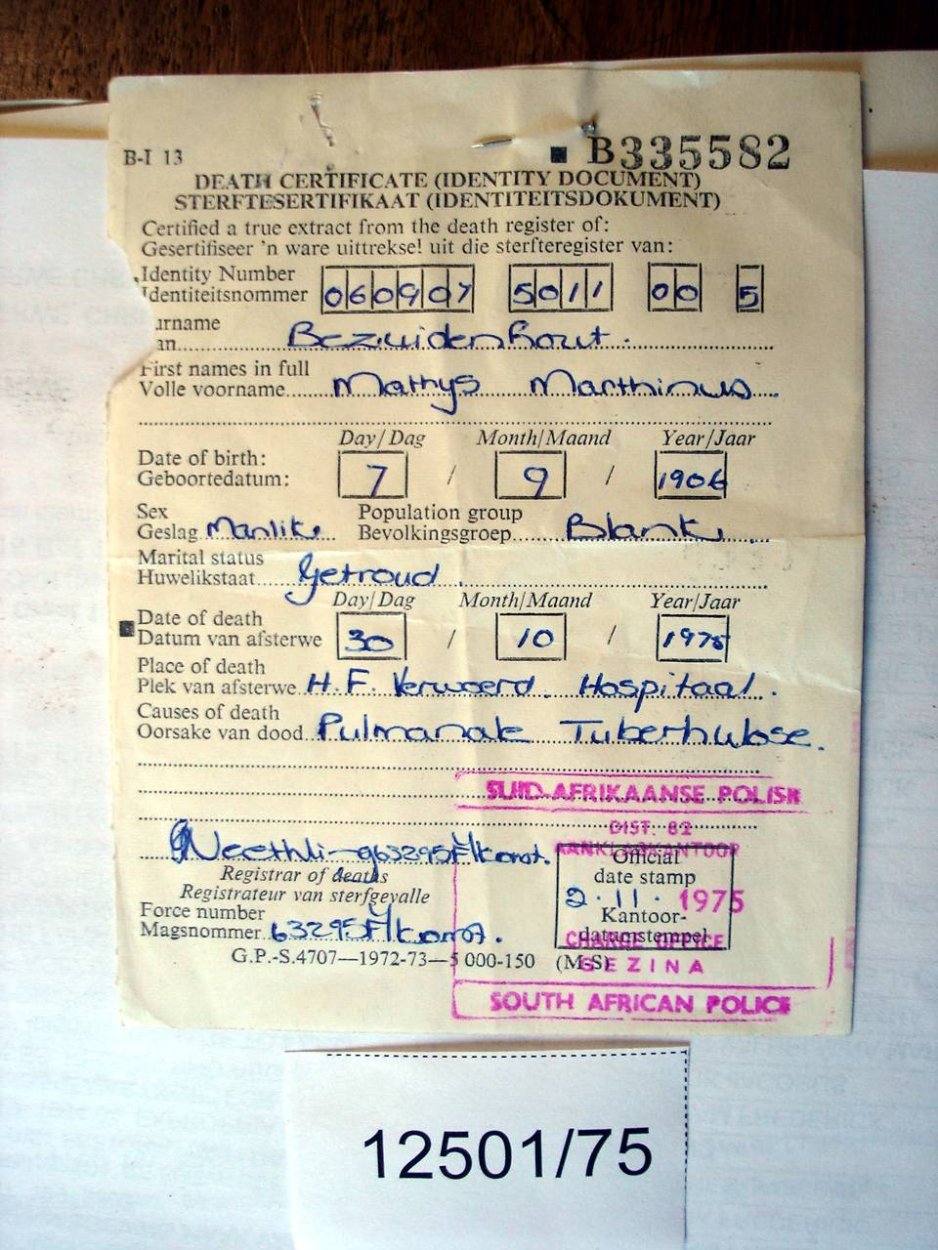 B-I 13
B335582
DEATH CERTIFICATE (IDENTITY DOCUMENT)
STERFTESERTIFIKAAT (IDENTITEITSDOKUMENT)
Certified a true extract from the death register of:
Gesertifiseer 'n ware uittreksel uit die sterfteregister van:
Identity Number
Identiteitsnommer 060907 5011 00 5
urname
an Bezuidenhout.
First names in full
Volle voorname Mathys Marthinus
Day/Dag Month/Maand Year/Jaar
Date of birth:
Geboortedatum: 7 / 9 / 1906
Sex Population group
Geslag Manlik Bevolkingsgroep Blank
Marital status
Huwelikstaat Getroud
Day/Dag Month/Maand Year/Jaar
Date of death
Datum van afsterwe 30 / 10 / 1975
Place of death
Plek van afsterwe H.F. Verwoerd Hospitaal.
Causes of death
Oorsake van dood Pulmanale Tuberkulose.
SUID-AFRIKAANSE POLISIE
DIST. 82
AANKLAGKANTOOR
Official
Registrar of deaths
date stamp
Registrateur van sterfgevalle
2. 11. 1975
Force number
Kantoor-
Magsnommer 63295
datumstempel
CHARGE OFFICE
G.P.-S.4707—1972-73—5 000-150 (M-S)
GEZINA
SOUTH AFRICAN POLICE
12501/75